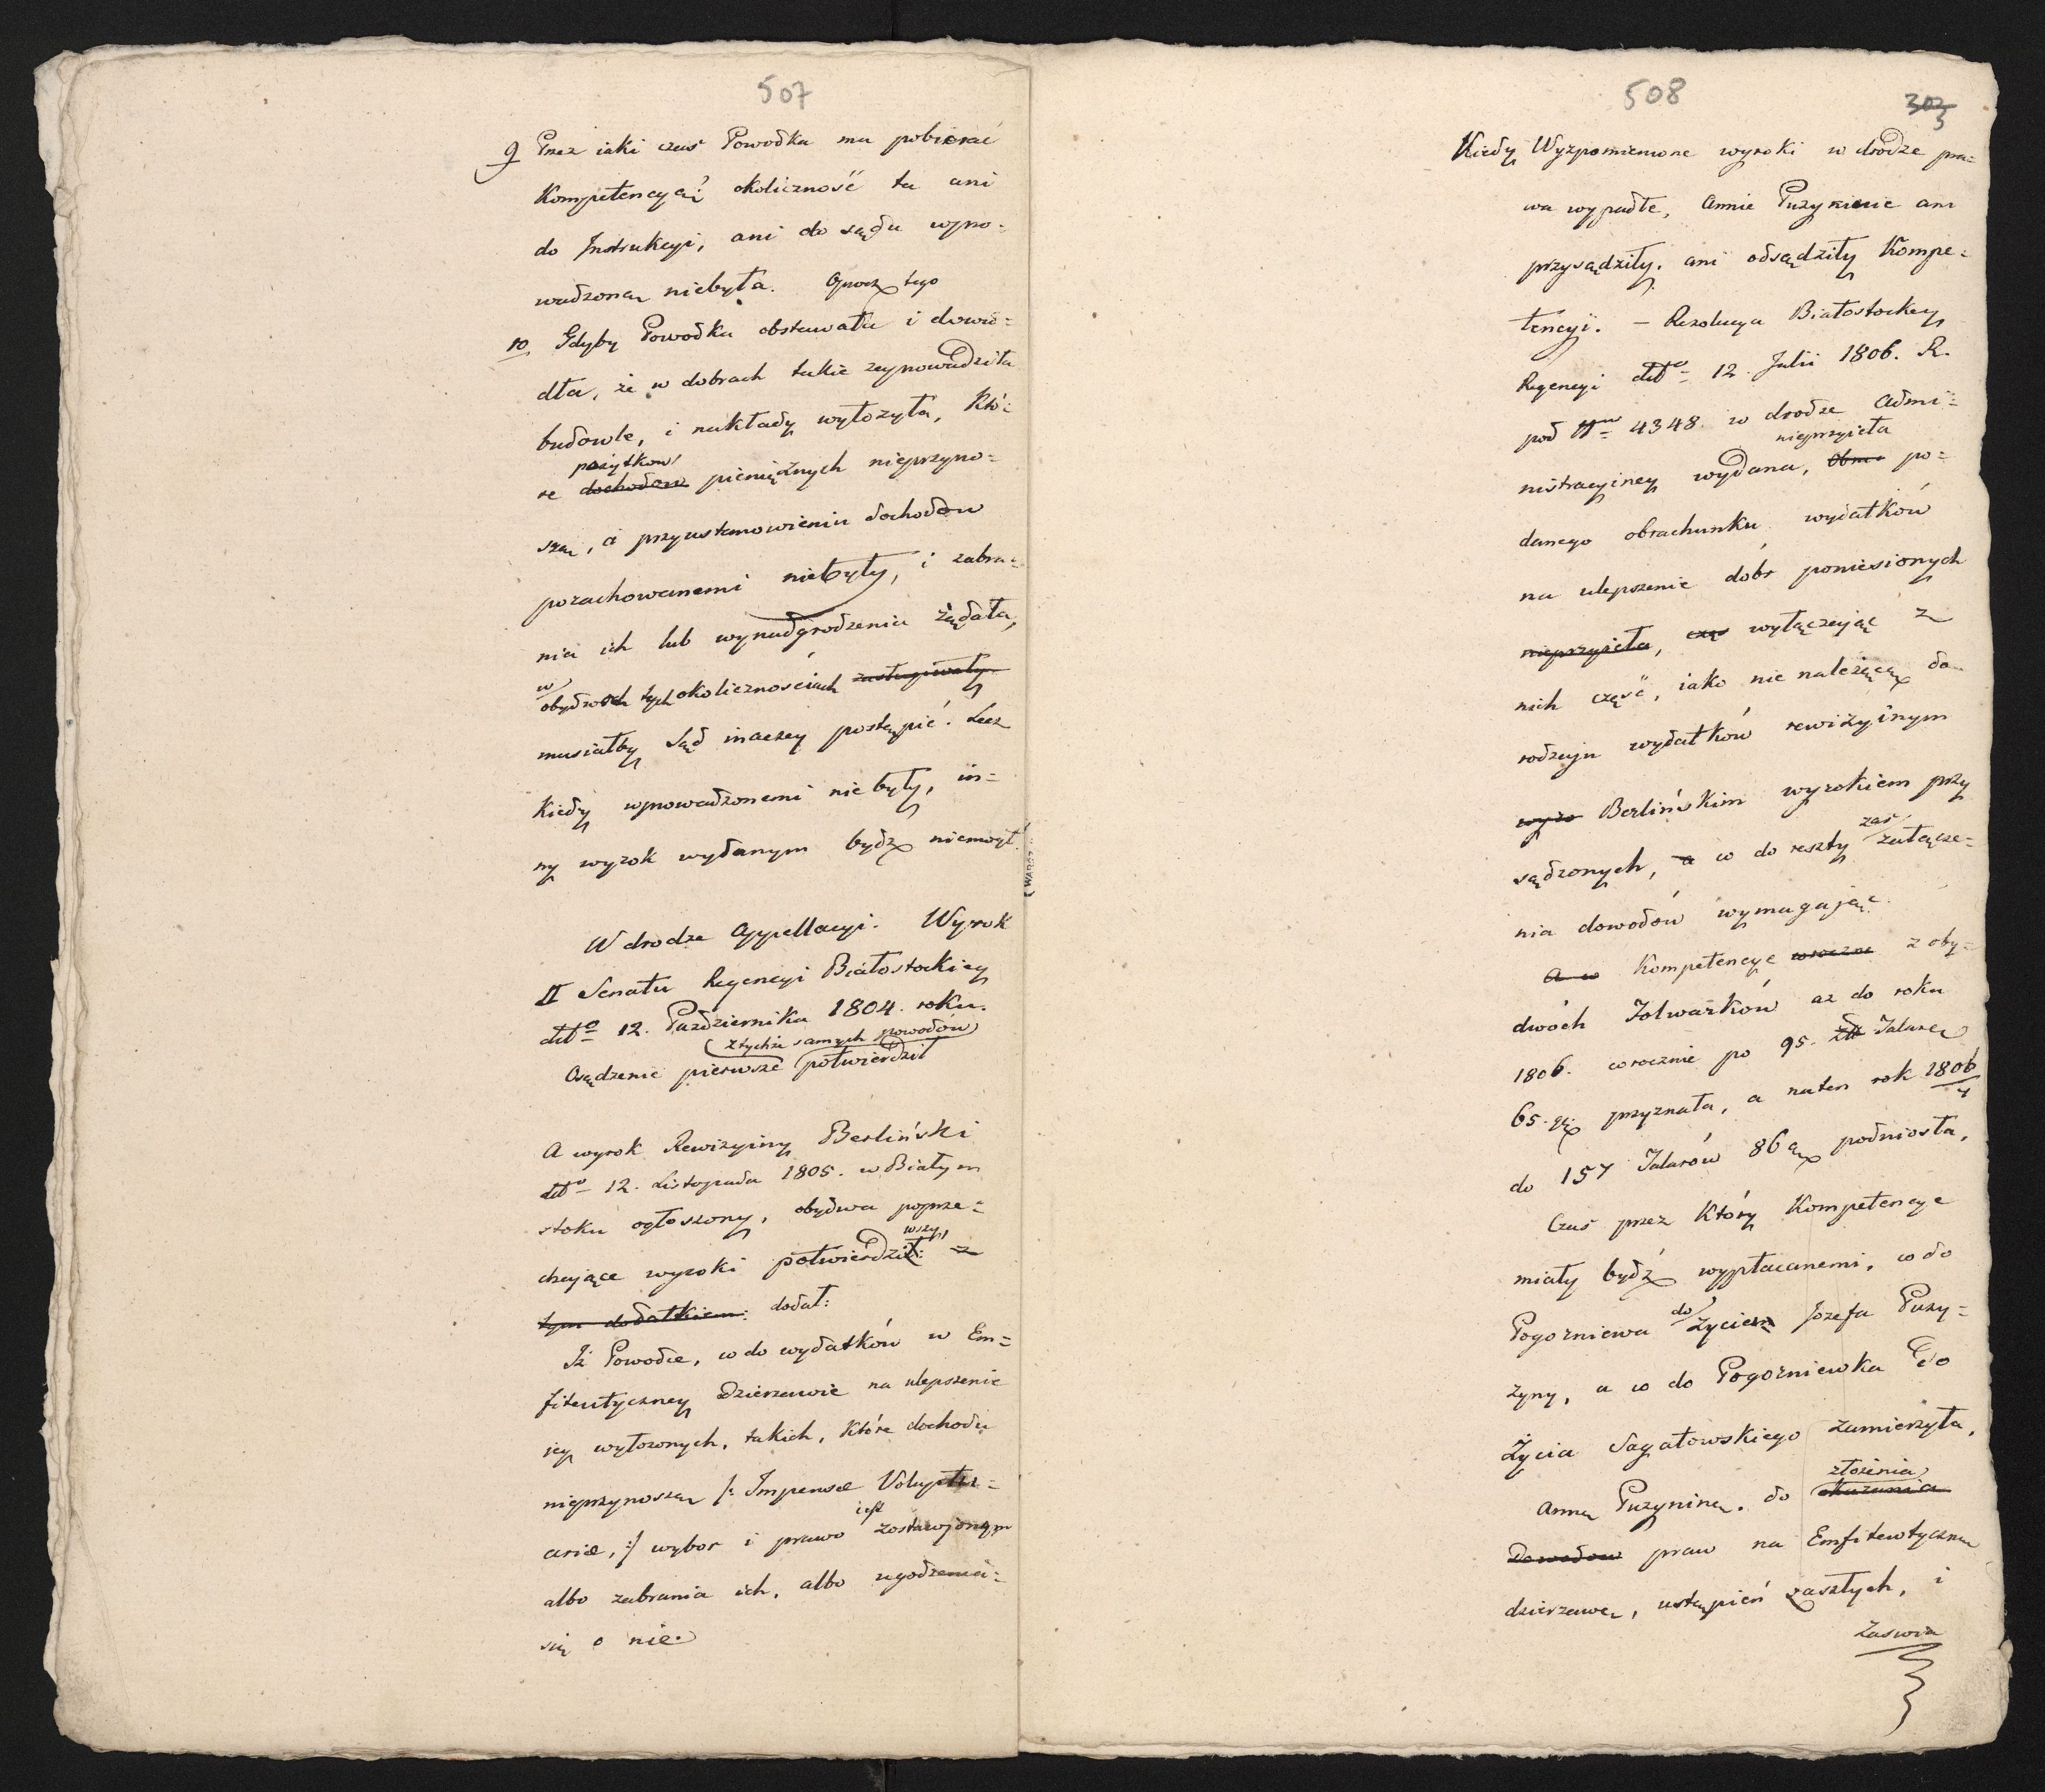 507
9 Przez iaki czas Powodka ma pobierać
Kompetencyą? okoliczność ta ani
do Instrukcyi, ani do sądu wpro-
wadzoną niebyła. Oprocz tego
10 Gdyby Powodka obstawała i dowo=
dła, że w dobrach takie zaprowadziła
budowle, i nakłady wyłozyła, Któ=
pożytkow
re dochodow pieniężnych nieprzyno=
szą, a przy ustanowieniu dochodow
porachowanemi niebyły, i zabra=
nia ich lub wynadgrodzenia żądała,
w
obydwoch tych okolicznościach zastępowały
musiałby Sąd inaczey postąpić. Lecz
Kiedy wprowadzonemi nie były, in=
ny wyrok wydanym bydź niemógł.
W drodze Appellacyi. Wyrok
II Senatu Regencyi Białostockiey
dtto 12. Października 1804. roku.
z tychże samych powodów
Osądzenie pierwsze potwierdził
A wyrok Rewizyiny Berliński
dtto 12. Listopada 1805. w Białym
stoku ogłoszony, obydwa poprze=
wszy,
dzające wyroki potwierdził: z
tym dodatkiem: dodał:
Iż Powodce, co do wydatków w Em=
fiteutyczney Dzierzawie na ulepszenie
iey wyłozonych, takich, które dochodu
nieprzynoszą /: Impensæ Voluptu=
iest
ariæ, :/ wybor i prawo zostawionym
albo zabrania ich, albo ugodzenia
się o nie.
508
303
Kiedy Wyżpomienione wyroki w drodze pra=
wa wypadłe, Annie Puzyninie ani
przysądziły, ani odsądziły Kompe=
tencyi. – Rezolucya Białostockiey
Regencyi dtto 12. Julii 1806. R.
pod Nrm 4348. w drodze Admi=
nieprzyięła
nistracyiney wydana, Obra po=
danego obrachunku wydatków
na ulepszenie dóbr poniesionych
nieprzyięła, czę wyłączając z
nich część, iako nie należącą do
rodzaju wydatków rewizyinym
wyro Berlińskim wyrokiem przy
zaś
sądzonych, a co do reszty załącze=
nia dowodów wymagając.
A co Kompetencye roczne z oby=
dwóch Folwarków aż do roku
1806. corocznie po 95. Talarow
65. gr przyznała, a na ten rok 1806/7
do 157 Talarów 86 gr podniosła.
Czas przez Który Kompetencye
miały bydź wypłacanemi, co do
do
Pogorzniewa życiem Jozefa Puzy=
zyny, a co do Pogorzniewka do
Życia Sagatowskiego zamierzyła,
złożenia
Annę Puzyninę, do okazania
Dowodow praw na Emfitewtyczną
dzierzawę, ustąpień zaszłych, i
Zaswia